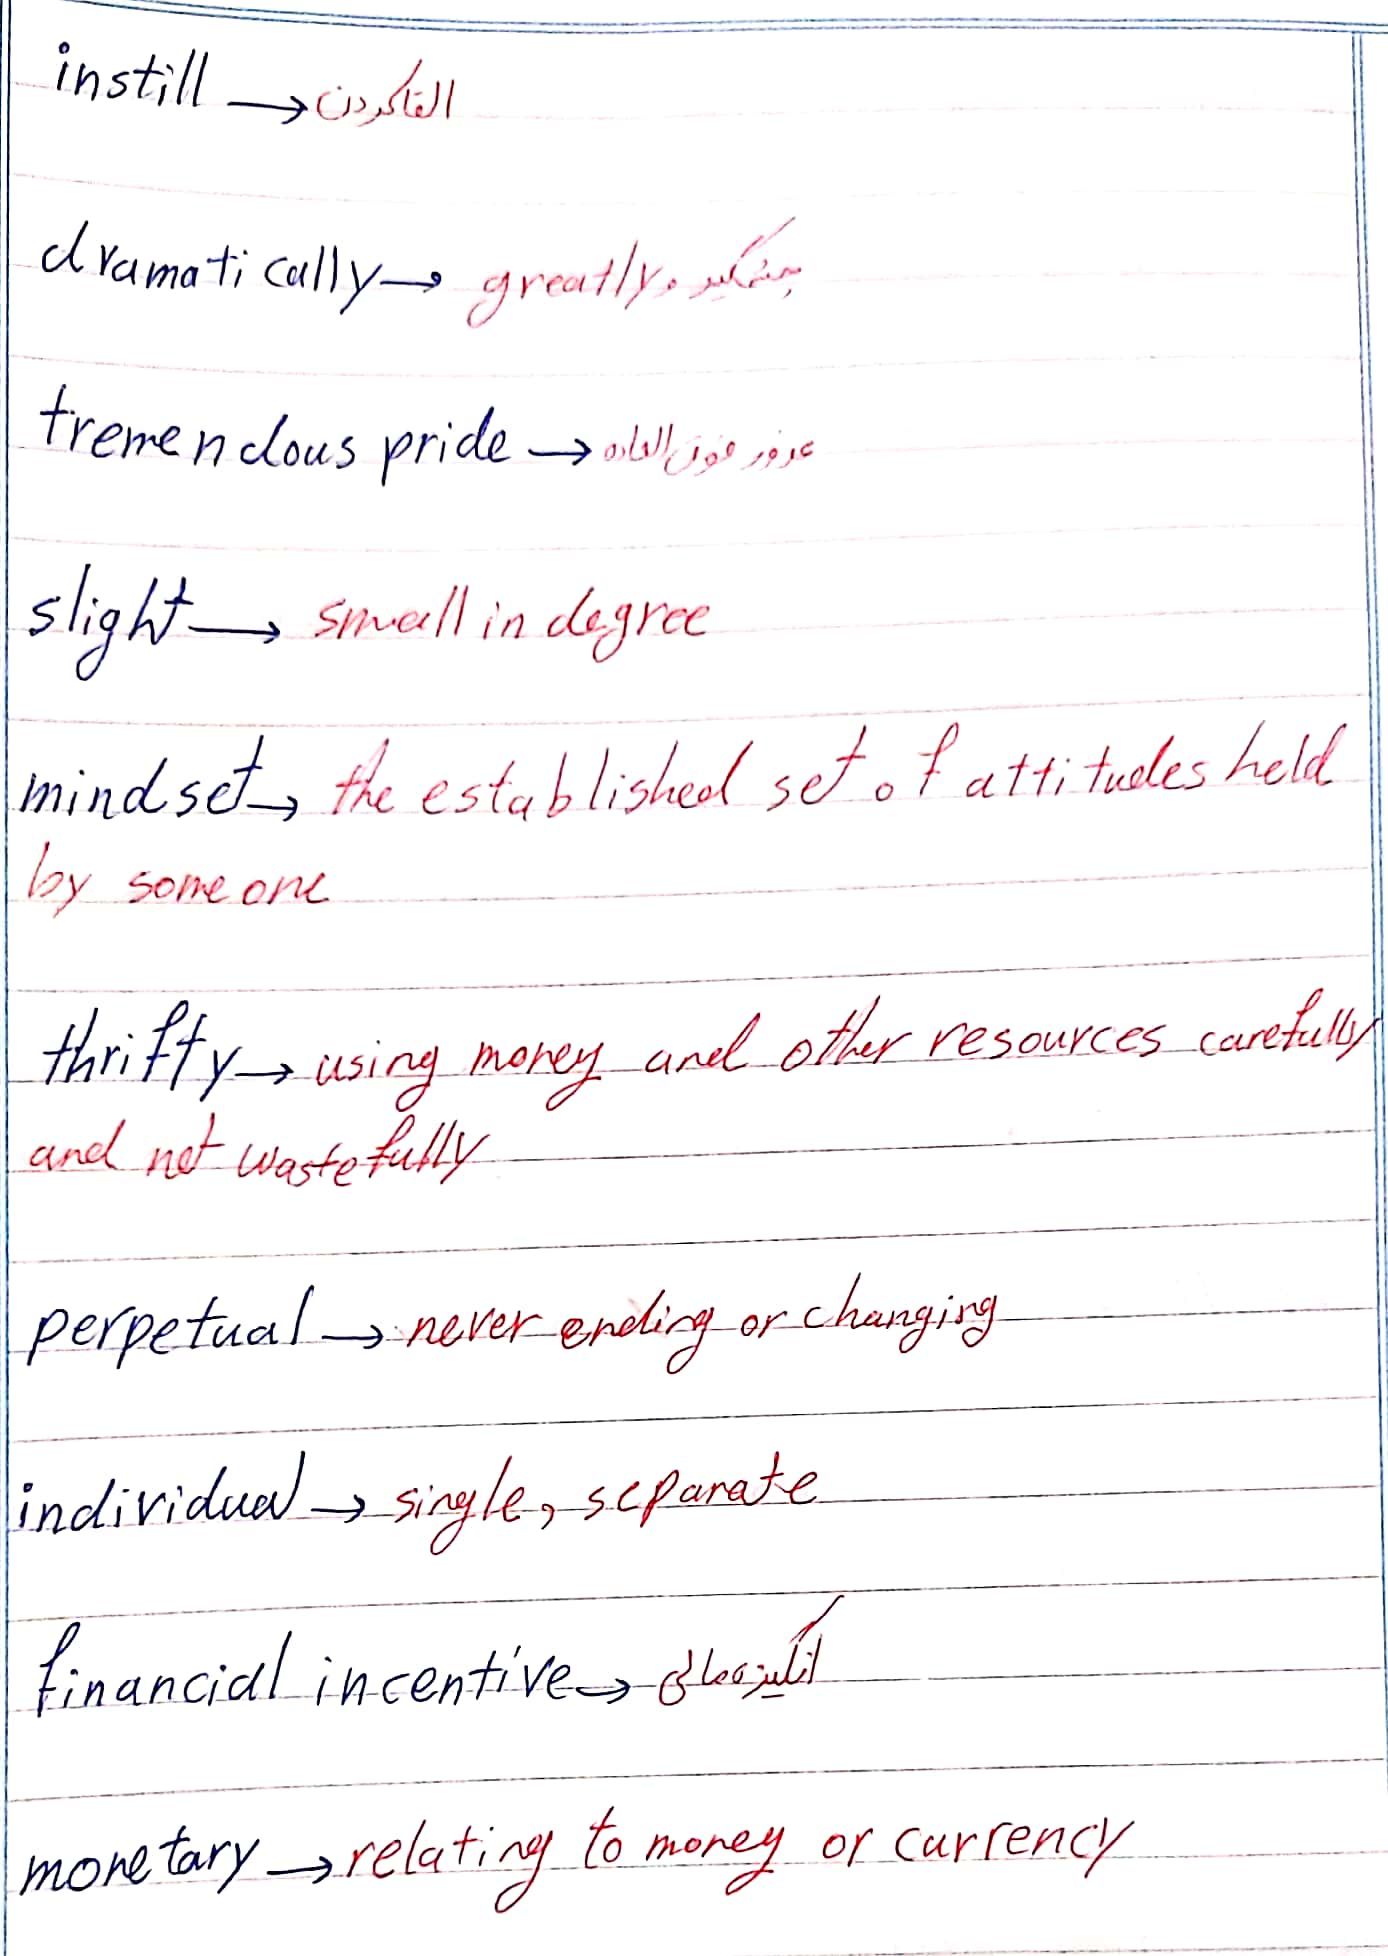 instill → القاکردن
dramatically → greatly, چشمگیر
tremendous pride → غرور فوق العاده
slight → small in degree
mindset → the established set of attitudes held
by someone
thrifty → using money and other resources carefully
and not wastefully
perpetual → never ending or changing
individual → single, separate
financial incentive → انگیزه مالی
monetary → relating to money or currency